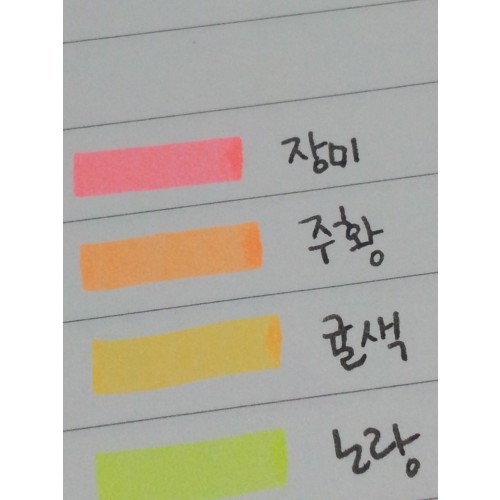 장미
주황
귤색
노랑